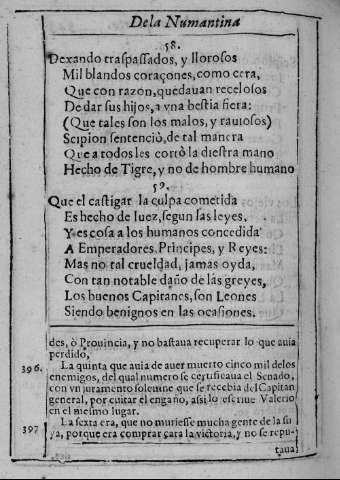 De la Numantina
58.
Dexando traspassados, y llorosos
Mil blandos coraçones, como cera,
Que con razon, quedauan recelosos
De dar sus hijos, a vna bestia fiera:
(Que tales son los malos, y rauiosos)
Scipion sentenciò, de tal manera
Que a todos les cortò la diestra mano
Hecho de Tigre, y no de hombre humano
59.
Que el castigar la culpa cometida
Es hecho de Iuez, segun las leyes,
Y es cosa a los humanos concedida
A Emperadores, Principes, y Reyes:
Mas no tal crueldad, jamas oyda,
Con tan notable daño de las greyes,
Los buenos Capitanes, son Leones
Siendo benignos en las ocasiones.
des, ò Prouincia, y no bastaua recuperar lo que auia
perdido,
396. La quinta que auia de auer muerto cinco mil delos
enemigos, del qual numero se certificaua el Senado,
con vn juramento solemne que se recebia del Capitan
general, por euitar el engaño, assi lo escriue Valerio
en el mismo lugar.
397 La sexta era, que no muriesse mucha gente de la su
ya, porque era comprar cara la victoria, y no se repu-
taua